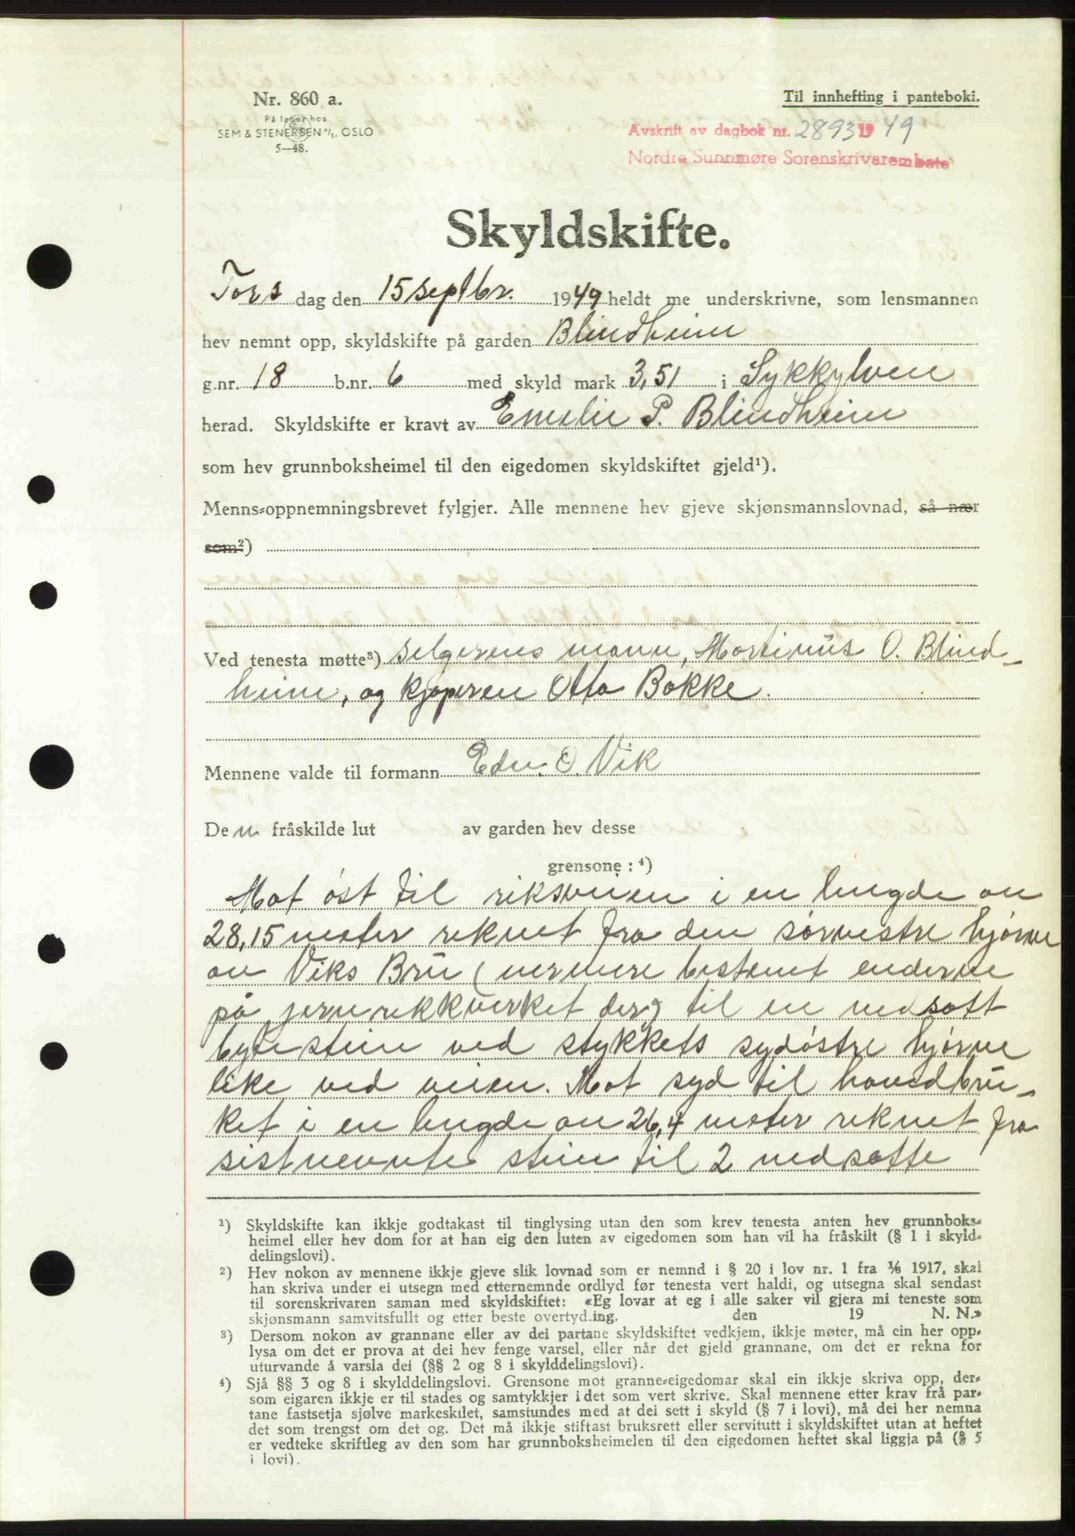 Nr. 860 a.
På lager hos
SEM & STENERSEN A/S, OSLO
5—48.
Til innhefting i panteboki.
Avskrift av dagbok nr. 2893 1949
Nordre Sunnmøre Sorenskrivarembete
Skyldskifte.
Tors dag den 15 septbr. 1949 heldt me underskrivne, som lensmannen
hev nemnt opp, skyldskifte på garden Blindheim
g.nr. 18 b.nr. 6 med skyld mark 3,51 i Sykkylven
herad. Skyldskifte er kravt av Emelie P. Blindheim
som hev grunnboksheimel til den eigedomen skyldskiftet gjeld¹).
Menns-oppnemningsbrevet fylgjer. Alle mennene hev gjeve skjønsmannslovnad, så nær
som²)
Ved tenesta møtte³) selgerens mann, Martinus O. Blind-
heim, og kjøperen Otto Bakke.
Mennene valde til formann Edv. O. Vik
Den fråskilde lut av garden hev desse
grensone: ⁴)
Mot øst til riksveien i en lengde av
28,15 meter reknet fra den sørvestre hjørne
av Viks Bru (nermere bestemt enderne
på jernrekkverket der) til en nedsatt
bytestein ved stykkets sydøstre hjørne
like ved veien. Mot syd til hovedbru-
ket i en lengde av 26,4 meter reknet fra
sistnevnte stein til 2 nedsatte
¹) Skyldskifte kan ikkje godtakast til tinglysing utan den som krev tenesta anten hev grunnboks-
heimel eller hev dom for at han eig den luten av eigedomen som han vil ha fråskilt (§ 1 i skyld-
delingslovi).
²) Hev nokon av mennene ikkje gjeve slik lovnad som er nemnd i § 20 i lov nr. 1 fra 1/6 1917, skal
han skriva under ei utsegn med etternemnde ordlyd før tenesta vert haldi, og utsegna skal sendast
til sorenskrivaren saman med skyldskiftet: «Eg lovar at eg i alle saker vil gjera mi teneste som
skjønsmann samvitsfullt og etter beste overtyding. den 19 N. N.»
³) Dersom nokon av grannane eller av dei partane skyldskiftet vedkjem, ikkje møter, må ein her opp-
lysa om det er prova at dei hev fenge varsel, eller når det gjeld grannane, om det er rekna for
uturvande å varsla dei (§§ 2 og 8 i skylddelingslovi).
⁴) Sjå §§ 3 og 8 i skylddelingslovi. Grensone mot granne-eigedomar skal ein ikkje skriva opp, der-
som eigaren ikkje er til stades og samtykkjer i det som vert skrive. Skal mennene etter krav frå par-
tane fastsetja sjølve markeskilet, samstundes med at dei sett i skyld (§ 7 i lovi), må dei her nemna
det som trengst om det og. Det må ikkje stiftast bruksrett eller servitutt i skyldskiftet utan at heftet
er vedteke skriftleg av den som har grunnboksheimelen til den eigedomen heftet skal liggja på (§ 5
i lovi).